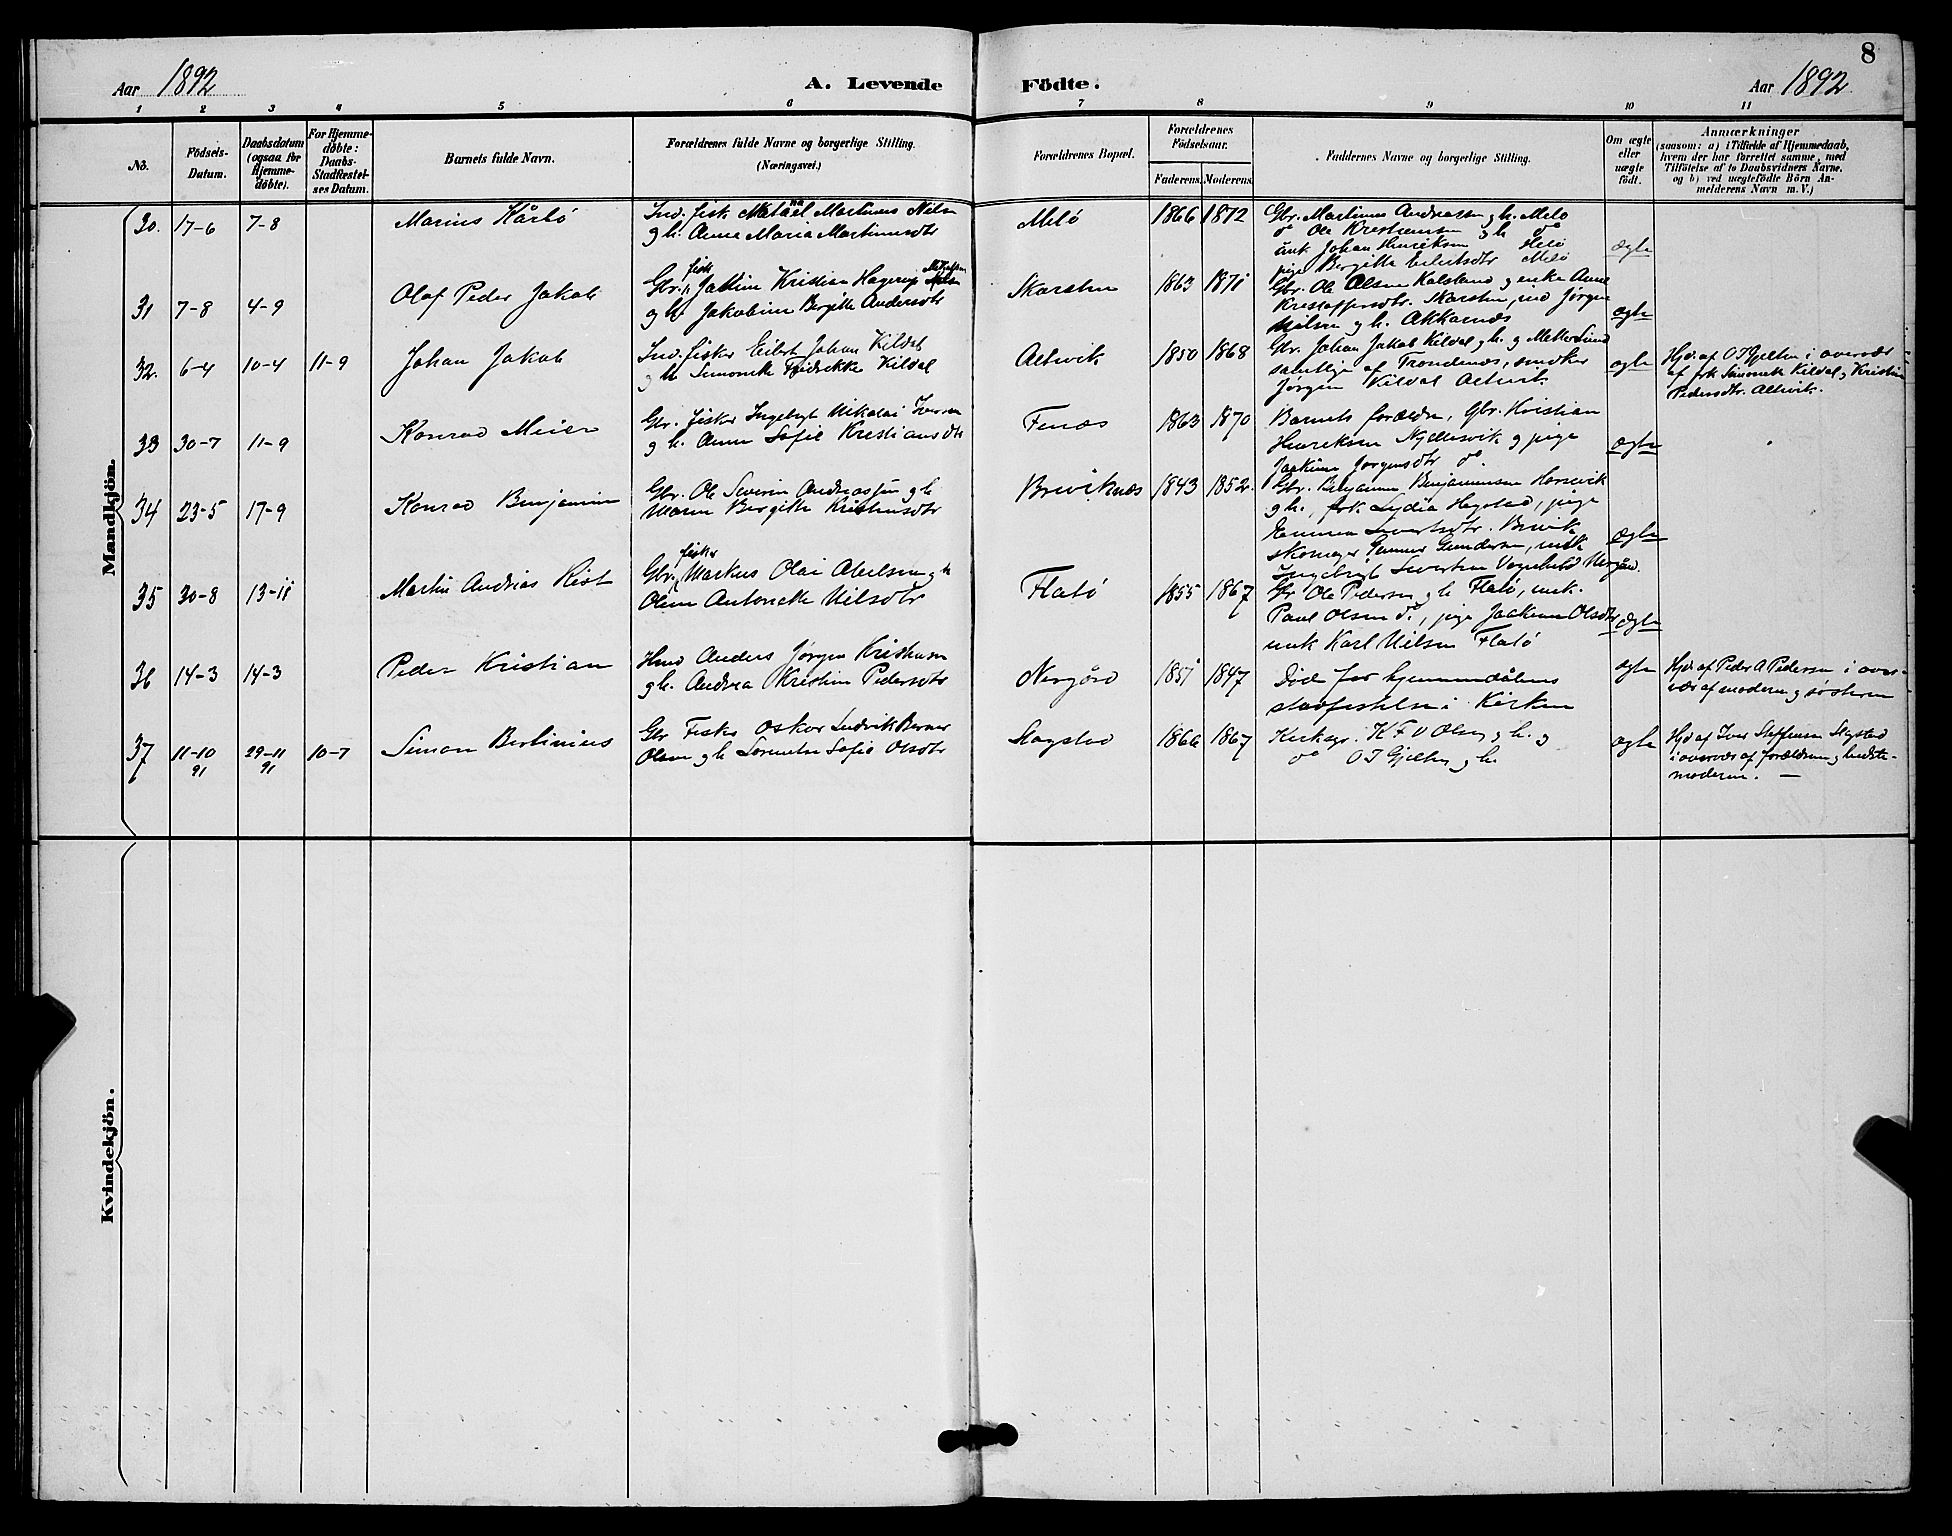 8
Aar 1892
A. Levende Födte.
Aar 1892
1 2 3 4 5 6 7 8 9 10 11
No.
Födsels-Datum.
Daabsdatum (ogsaa for Hjemme-døbte).
For Hjemme-døbte: Daabs-Stadfæstel-ses Datum.
Barnets fulde Navn.
Forældrenes fulde Navne og borgerlige Stilling.
(Næringsvei.)
Forældrenes Bopæl.
Forældrenes Födselsaar.
Faderens. Moderens.
Faddernes Navne og borgerlige Stilling.
Om ægte eller uægte født.
Anmærkninger
(saasom: a) i Tilfælde af Hjemmedaab,
hvem der har forrettet samme, med
Tilföielse af to Daabsvidners Navne,
og b) ved uægtefödte Börn An-
melderens Navn m. V.)
Mandkjön.
30. 17-6 7-8 Marius Kårbö
Ind. fisk Martinus Nilsen
g h. Anna Maria Martinusdtr
Melö 1866 1872
Gbr. Martinus Andreassen g h. Melö
do Ole Kristiansen g h do
unk Johan Henriksen Melö
pige Bergitte Eilertsdtr Melö
ægte
31 7-8 4-9 Olaf Peder Jakob
Gbr. fisk Joakim Kristian Hagerup
g h Jakobine Bergitte Andersdtr
Skarsten 1863 1871
Gbr. Ole Olsen Kalsland g enke Anne
Kristoffersdtr. Skarsten, ind Jørgen
Nilsen g h. Akkarnæs
ægte
32. 6-4 10-4 11-9 Johan Jakob
Ind. fisker Eilert Johan Kildal
g h Simonette Fredrikke Kildal
Altevik 1850 1868
Gbr. Johan Jakob Kildal g h. g Mette Sund
samtlige af Trondenes, snedker
Jørgen Kildal Altevik
ægte
Hjd. af O T Gjelten i overvær
af frk Simonette Kildal g Kristine
Pedersdtr. Altevik.
33 30-7 11-9 Konrad Meier
Gbr. fisker Ingebrigt Nikolai Iversen
g h. Anna Sofie Kristiansdtr
Fenæs 1863 1870
Barnets forældre, Gbr. Kristian
Henriksen g pige
Joakime Jørgensdtr do.
ægte
34 23-5 17-9 Konrad Benjamin
Gbr. Ole Severin Andreassen g h
Maren Bergitte Kristensdtr
Breviknæs 1843 1852.
Gbr. Benjamin Benjaminsen
g h., frk Lydia Hegstad, pige
Emma Sivertsdtr. Brevik
skomager Gunnar Gundersen, unk
Ingebrigt Sivertsen
ægte
35 30-8 13-11 Martin Andreas Rist
Gbr. fisker Markus Olai Abelsen g h
Oline Antonette Nilsdtr
Flatö 1855 1867
Gbr Ole Pedersen g h Flatö, unk.
Paul Olsen do, pige Joakime Olsdtr
unk Karl Nilsen Flatö
ægte
36 14-3 14-3 Peder Kristian
Hmd Anders Jørgen Kristensen
g h. Andrea Kristine Pedersdtr
Nergård 1851 1847
Död før hjemmedåbens
stadfæstelse i Kirken
ægte
Hjd. af Peder A Pedersen i over-
vær af moderen g søsteren
37 11-10 91 29-11 91 10-7 Simon Bertinius
Gbr Fisker Oskar Ludvik Berner
Olsen g h Lorentze Sofie Olsdtr
Slagstad 1866 1867
Kirkesgr. K F V Olsen g h. g
do O T Gjelten g h.
ægte
Hjd af Iver Steffensen Slagstad
i overvær af forældrene g bedste-
moderen. —
Kvindekjön.